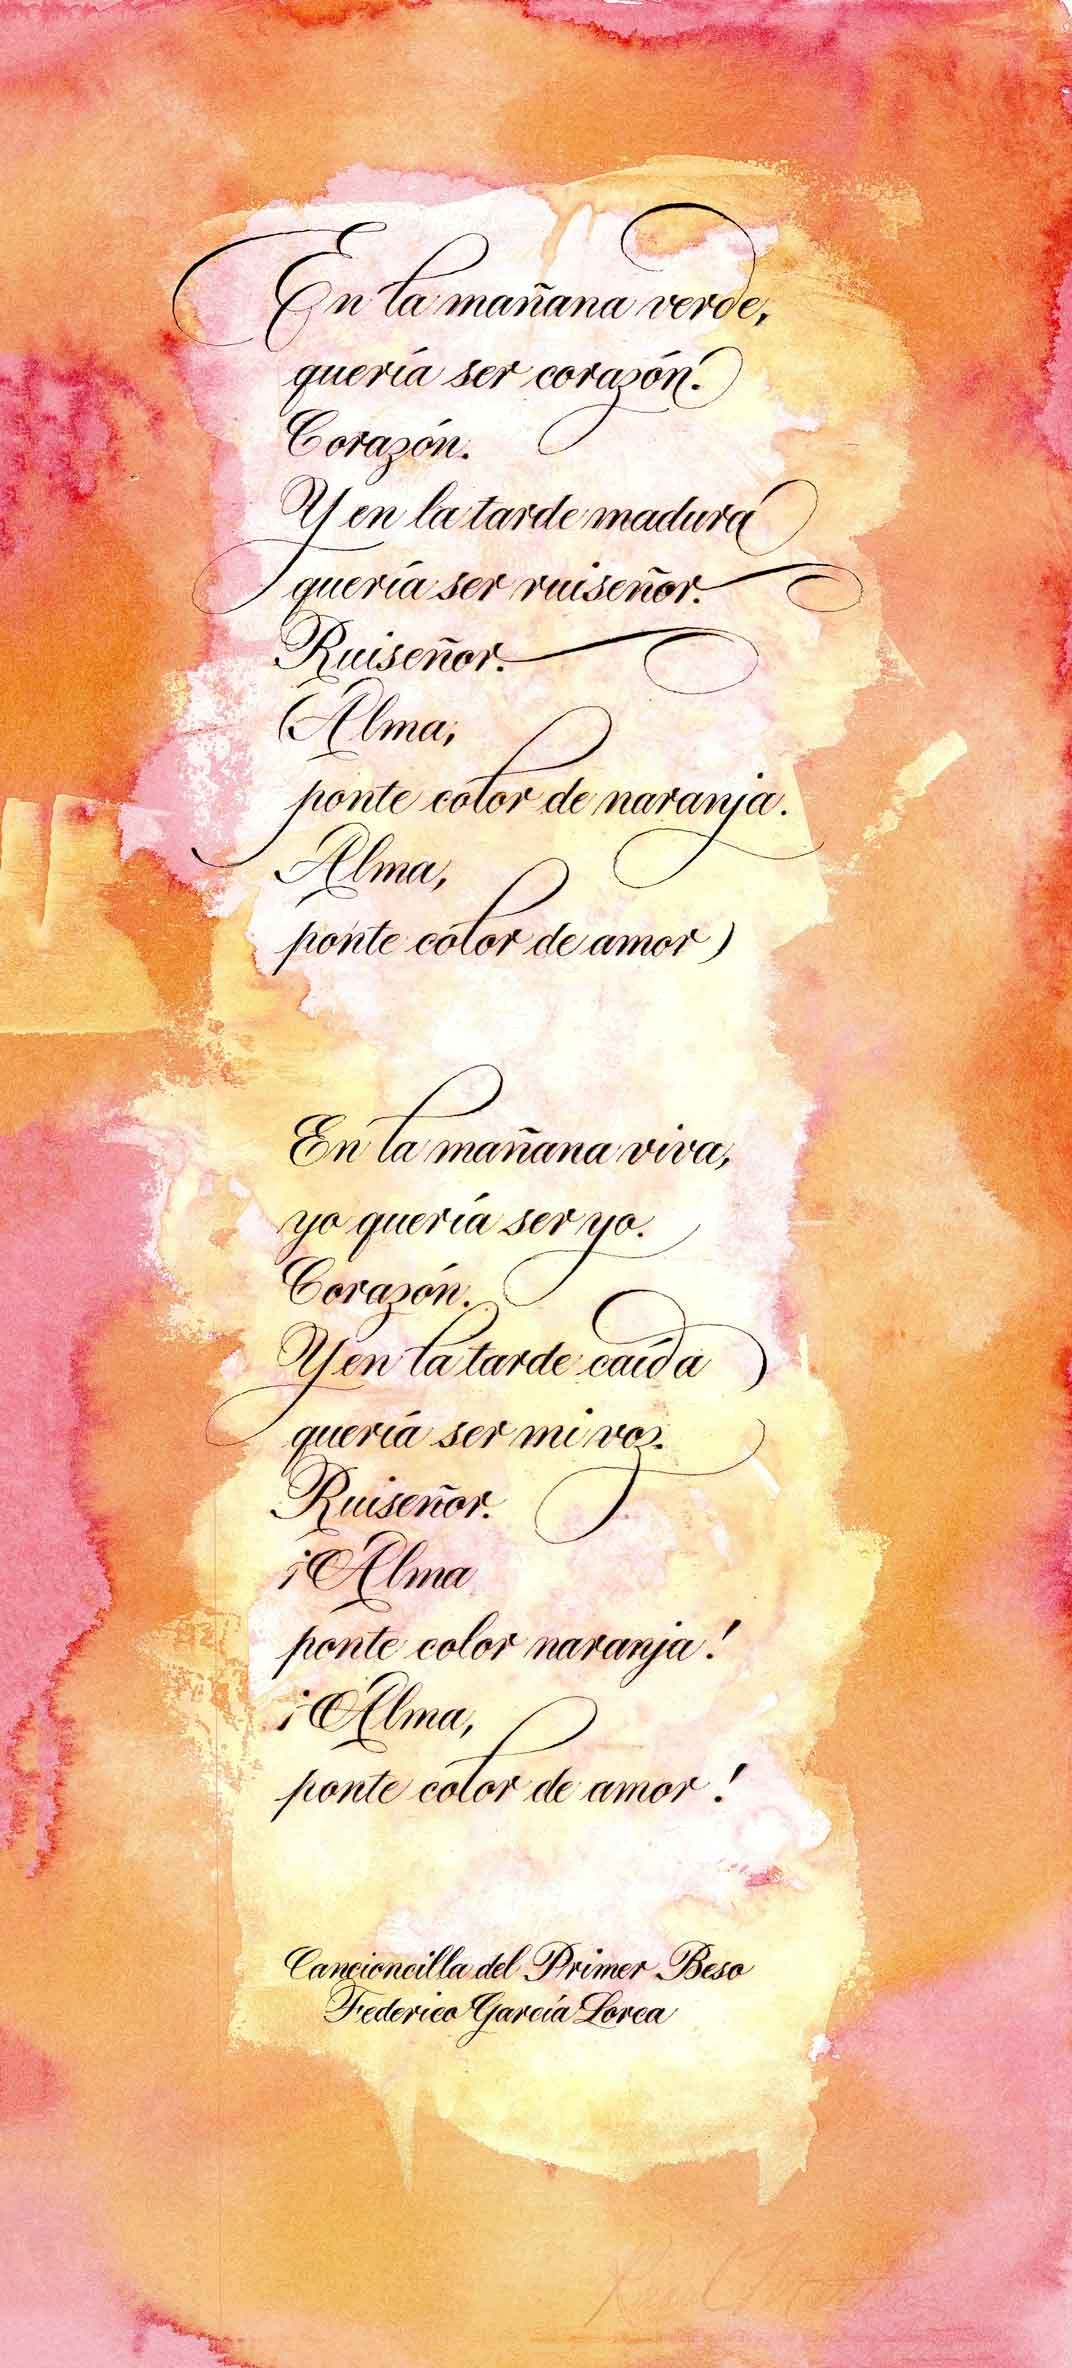 En la mañana verde,
quería ser corazón.
Corazón.
Y en la tarde madura
quería ser ruiseñor.
Ruiseñor.
(Alma,
ponte color de naranja.
Alma,
ponte color de amor)
En la mañana viva,
yo quería ser yo.
Corazón.
Y en la tarde caída
quería ser mi voz.
Ruiseñor.
¡Alma
ponte color naranja!
¡Alma,
ponte color de amor!
Cancioncilla del Primer Beso
Federico García Lorca